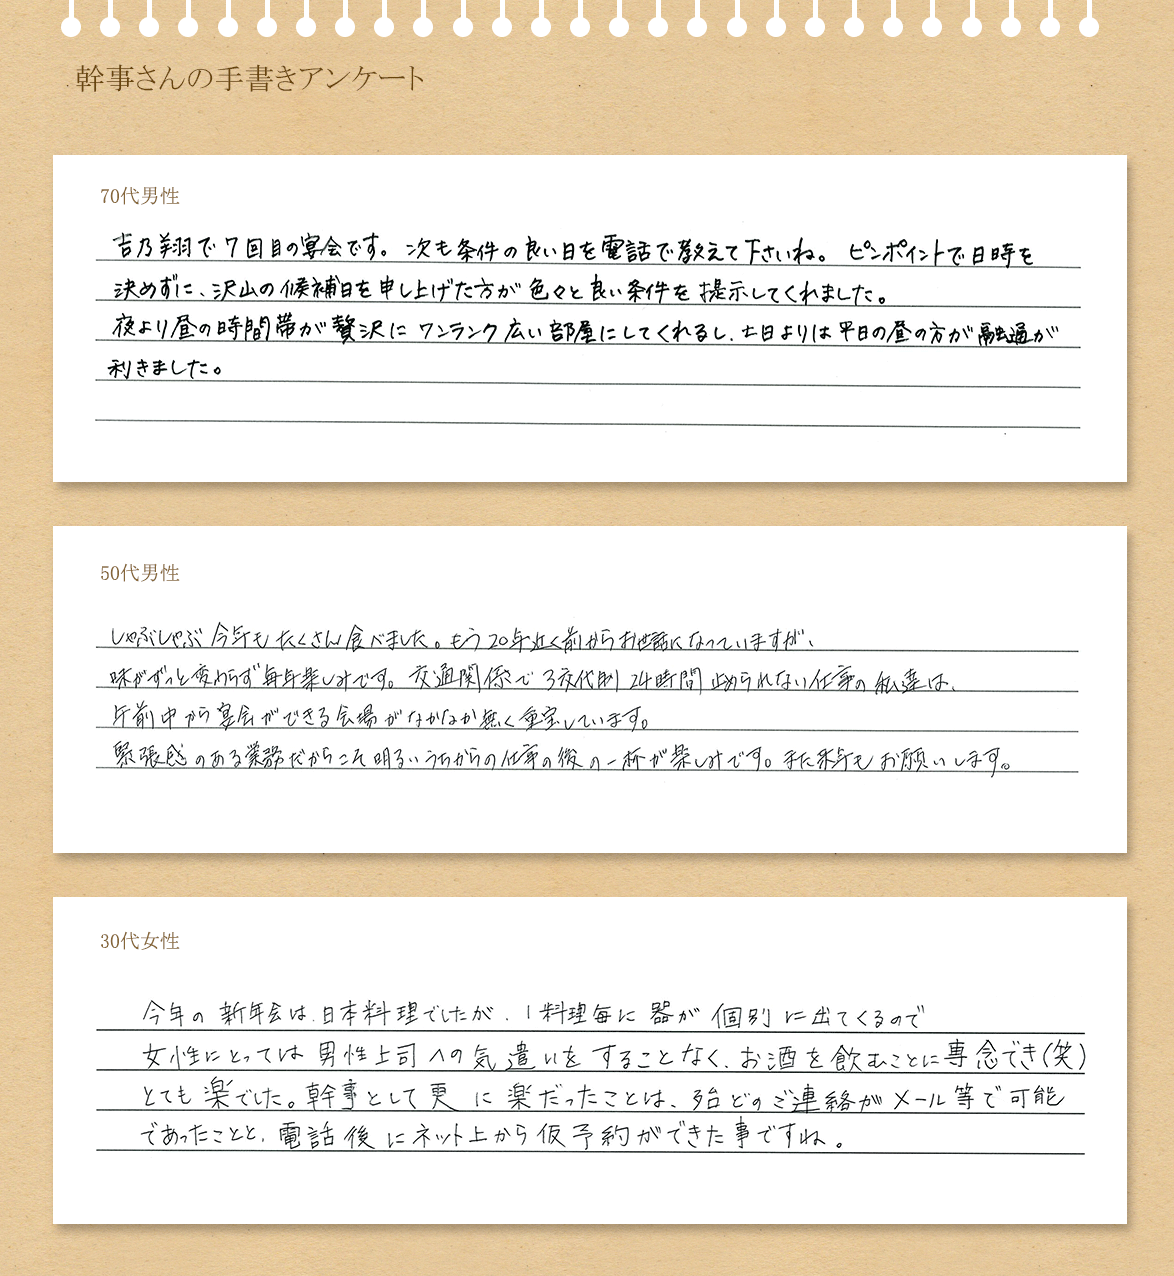 幹事さんの手書きアンケート
70代男性
吉乃翔で7回目の宴会です。次も条件の良い日を電話で教えて下さいね。ピンポイントで日時を
決めずに、沢山の候補日を申し上げた方が色々と良い条件を提示してくれました。
夜より昼の時間帯が贅沢にワンランク広い部屋にしてくれるし、土日よりは平日の昼の方が融通が
利きました。
50代男性
しゃぶしゃぶ今年もたくさん食べました。もう20年近く前からお世話になっていますが、
味がずっと変わらず毎年楽しみです。交通関係で3交代制24時間止められない仕事の私達は、
午前中から宴会ができる会場がなかなか無く重宝しています。
緊張感のある業務だからこそ明るいうちからの仕事の後の一杯が楽しみです。また来年もお願いします。
30代女性
今年の新年会は、日本料理でしたが、1料理毎に器が個別に出てくるので
女性にとっては男性上司への気遣いをすることなく、お酒を飲むことに専念でき(笑)
とても楽でした。幹事として更に楽だったことは、殆どのご連絡がメール等で可能
であったことと、電話後にネット上から仮予約ができた事ですね。